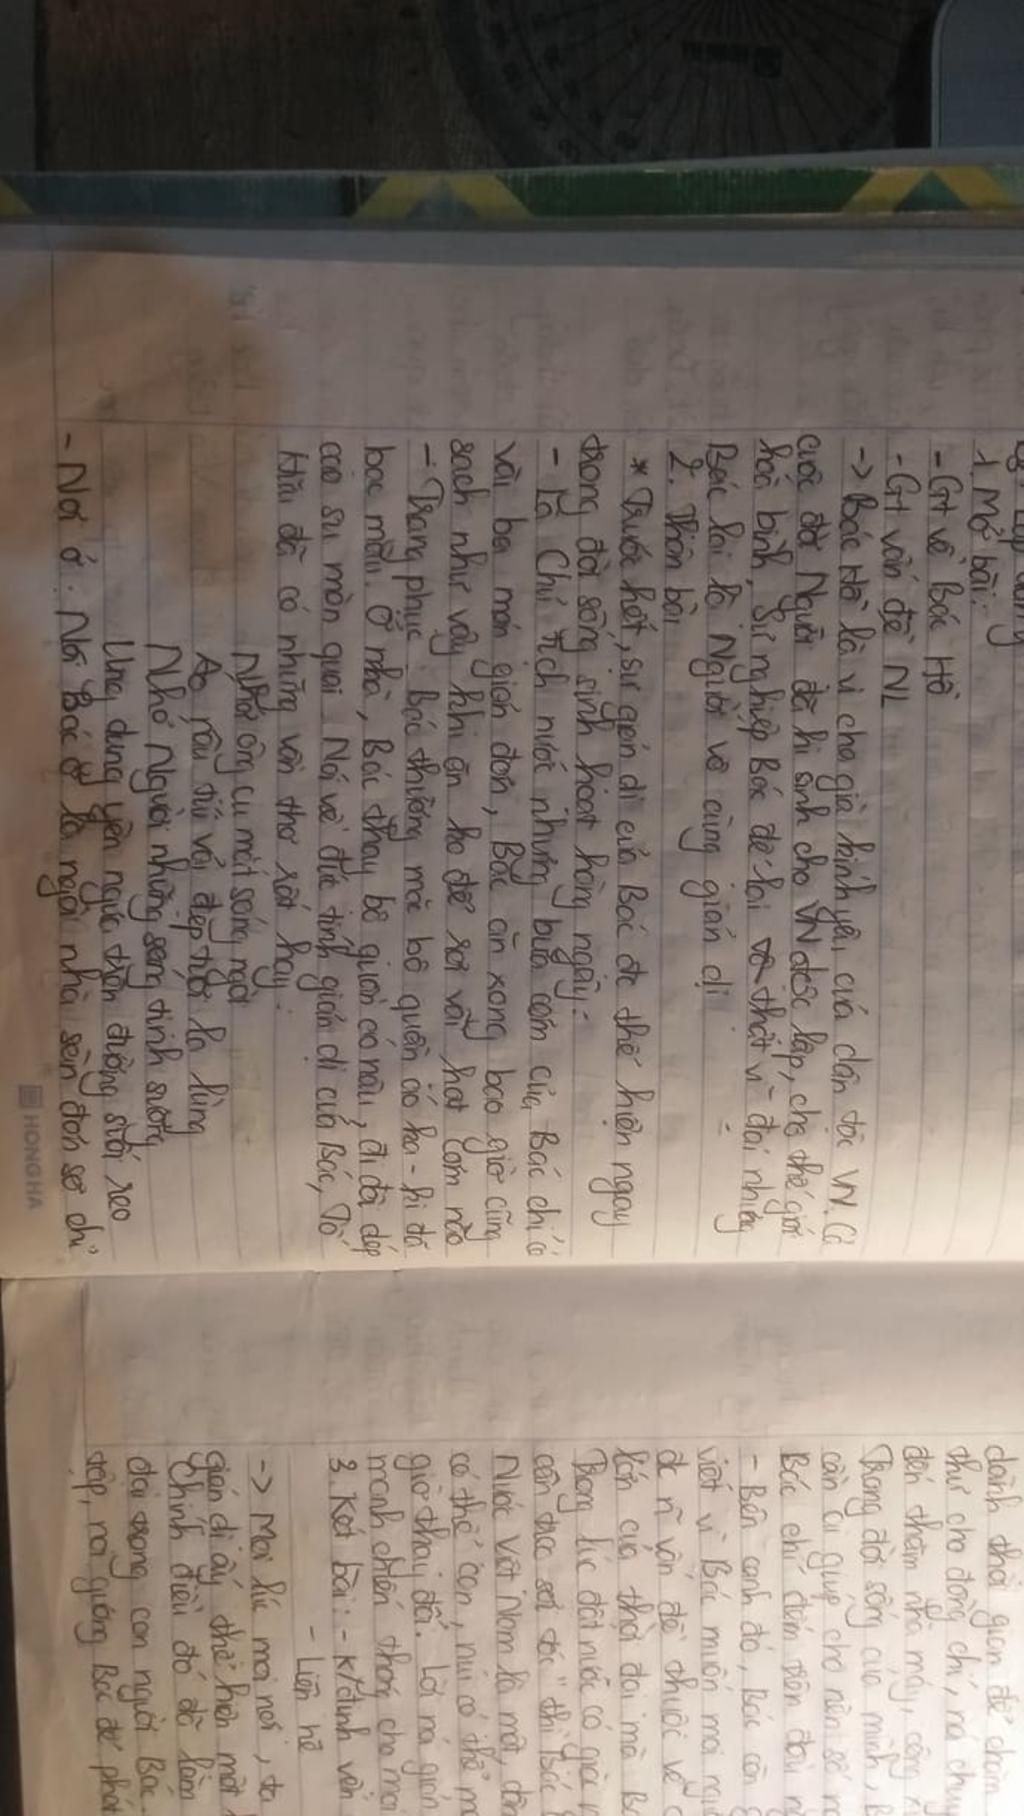 1. Mở bài:
- Gt về Bác Hồ
- Gt vấn đề NL
-> Bác Hồ là vị cha già kính yêu của dân tộc VN. Cả
cuộc đời Người đã hi sinh cho VN độc lập, cho thế giới
hoà bình. Sự nghiệp Bác để lại thật vĩ đại nhưng
Bác lại là Người vô cùng giản dị
2. Thân bài
* Trước hết, sự giản dị của Bác đc thể hiện ngay
trong đời sống sinh hoạt hàng ngày:
- Là Chủ tịch nước nhưng bữa cơm của Bác chỉ có
vài ba món giản đơn, Bác ăn xong bao giờ cũng
sạch như vậy khi ăn ko để rơi vãi hạt cơm nào
- Trang phục: Bác thường mặc bộ quần áo ka-ki đã
bạc màu. Ở nhà, Bác thay bộ quần áo nâu, đi đôi dép
cao su mòn quai. Nói về đức tính giản dị của Bác, Tố
Hữu đã có những vần thơ rất hay:
Nhớ ông cụ mắt sáng ngời
Áo nâu túi vải đẹp tươi lạ lùng
Nhớ Người những sáng tinh sương
Ung dung yên ngựa trên đường suối reo
- Nơi ở: Nơi Bác ở là ngôi nhà sàn đơn sơ chỉ
HONGHA
dành thời gian để chăm
thư cho đồng chí, nói chu
đến thăm nhà máy, công
Trong đời sống của mình,
cần ai giúp cho nên số
Bác chỉ đếm trên đầu
- Bên cạnh đó, Bác còn
viết vì Bác muốn mọi
đc n vấn đề thuộc về
lớn của thời đại mà
Trong lúc đất nước có giặc
cân treo sợi tóc" thì Bác
Nước Việt Nam là một, dân
có thể cạn, núi có thể m
giờ thay đổi. Lời nói giản
mạnh chiến thắng cho mọi
3. Kết bài: - K/đ vấn
- Liên hệ
-> Mọi lúc mọi nơi, ta
giản dị ấy thể hiện một
Chính điều đó đã làm
đại trong con người Bác.
tập, noi gương Bác để phát